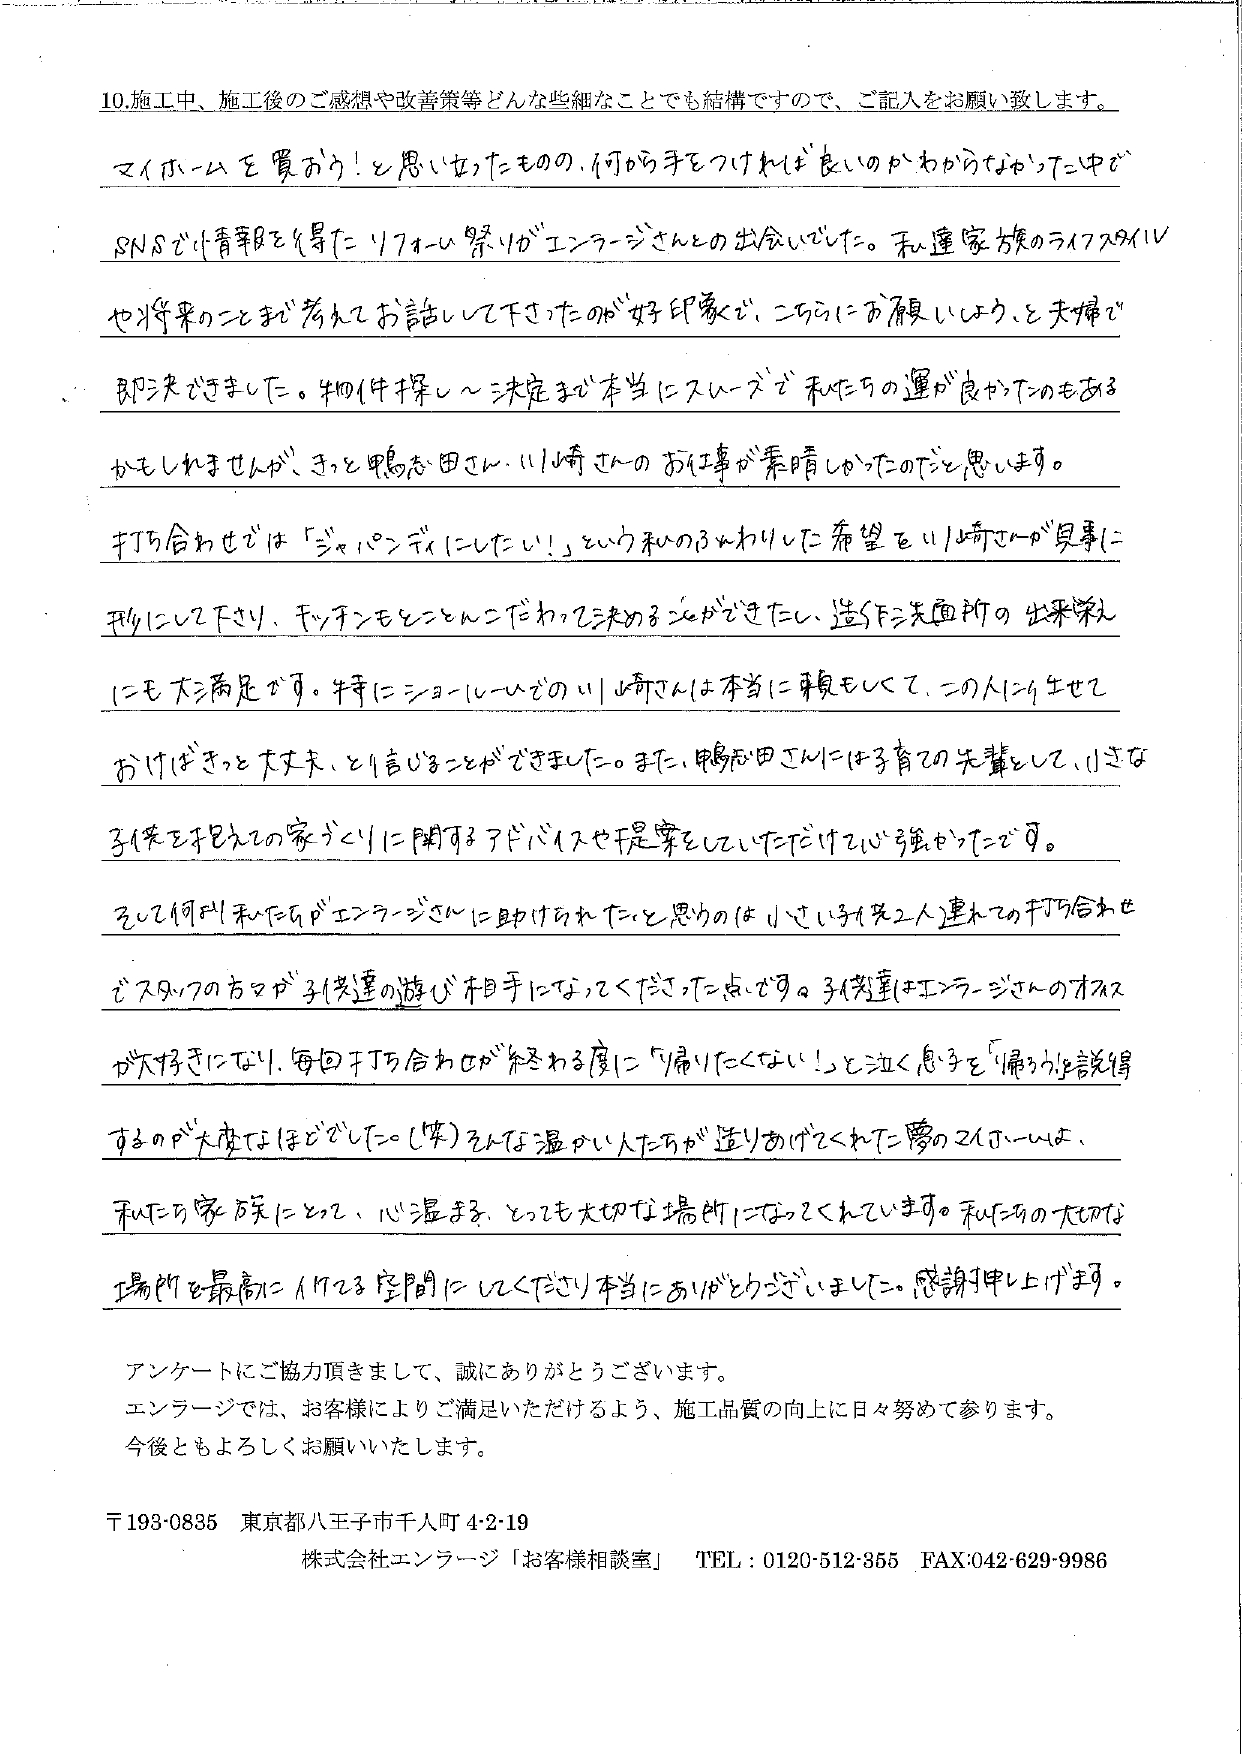 10.施工中、施工後のご感想や改善策等どんな些細なことでも結構ですので、ご記入をお願い致します。
マイホームを買おう！と思い立ったものの、何から手をつければ良いのかわからなかった中で
SNSで情報を得たリフォーム祭りがエンラージさんとの出会いでした。私達家族のライフスタイル
や将来のことまで考えてお話しして下さったのが好印象で、こちらにお願いしよう、と夫婦で
即決できました。物件探し～決定まで本当にスムーズで私たちの運が良かったのもある
かもしれませんが、きっと鴨志田さん、川崎さんのお仕事が素晴しかったのだと思います。
打ち合わせでは「ジャパンディにしたい！」という私のふんわりした希望を川崎さんが見事に
形にして下さり、キッチンもとことんこだわって決めることができたし、造作洗面所の出来栄え
にも大満足です。特にショールームでの川崎さんは本当に頼もしくて、この人に任せて
おけばきっと大丈夫、と信じることができました。また、鴨志田さんには子育ての先輩として、小さな
子供を抱えての家づくりに関するアドバイスや提案をしていただけて心強かったです。
そして何より私たちがエンラージさんに助けられた、と思うのは小さい子供2人連れての打ち合わせ
でスタッフの方々が子供達の遊び相手になってくださった点です。子供達はエンラージさんのオフィス
が大好きになり、毎回打ち合わせが終わる度に「帰りたくない！」と泣く息子を「帰ろう」と説得
するのが大変なほどでした。(笑)そんな温かい人たちが造りあげてくれた夢のマイホームは、
私たち家族にとって、心温まる、とっても大切な場所になってくれています。私たちの大切な
場所を最高にイケてる空間にしてくださり本当にありがとうございました。感謝申し上げます。
アンケートにご協力頂きまして、誠にありがとうございます。
エンラージでは、お客様によりご満足いただけるよう、施工品質の向上に日々努めて参ります。
今後ともよろしくお願いいたします。
〒193-0835 東京都八王子市千人町 4-2-19
株式会社エンラージ「お客様相談室」 TEL：0120-512-355 FAX:042-629-9986